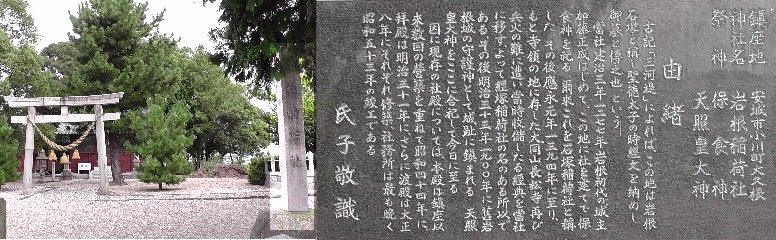 鎮座地　安城市小川町大岩根
神社名　岩根稲荷社
祭神　保食神
天照皇大神
由緒
古記「三河堤」によれば、この地は岩根
石塔と称し「聖徳太子の時経文を納めし
御墓と傳之也」という。
当社建治三年一二七七年岩根初代の城主
加藤正成はじめて、この地に社を建てて保
食神を祀る。爾来これを石塚稲荷社と稱
した。その後應永元年一三九四年に至り、
もと寺領の地に存した大同山長松寺再び
兵火の難に遭い当時収儲したる経典を当社
に移す。よって経塚稲荷社の名のある所以で
ある。その後明治三十三年一九〇〇年に舊岩
根城の守護神として城趾に鎮まれる 天照
皇大神をここに合祀して今日に至る
因に現存の社殿については、本殿は鎮座以
来数回の営築を重ねて昭和四十四年に、
拝殿は明治三十一年に、さらに渡殿は大正
八年にそれぞれ修築、社務所は最も晩く
昭和五十三年の竣工である
氏子敬識